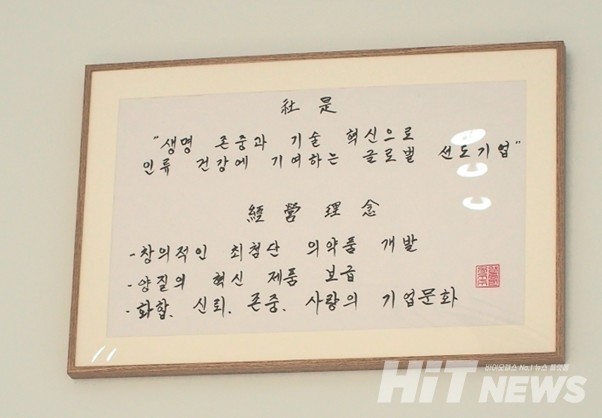 社是
"생명 존중과 기술 혁신으로
인류 건강에 기여하는 글로벌 선도기업"
經營理念
-창의적인 최첨단 의약품 개발
-양질의 혁신 제품 보급
-화합, 신뢰, 존중, 사랑의 기업문화
HiT NEWS